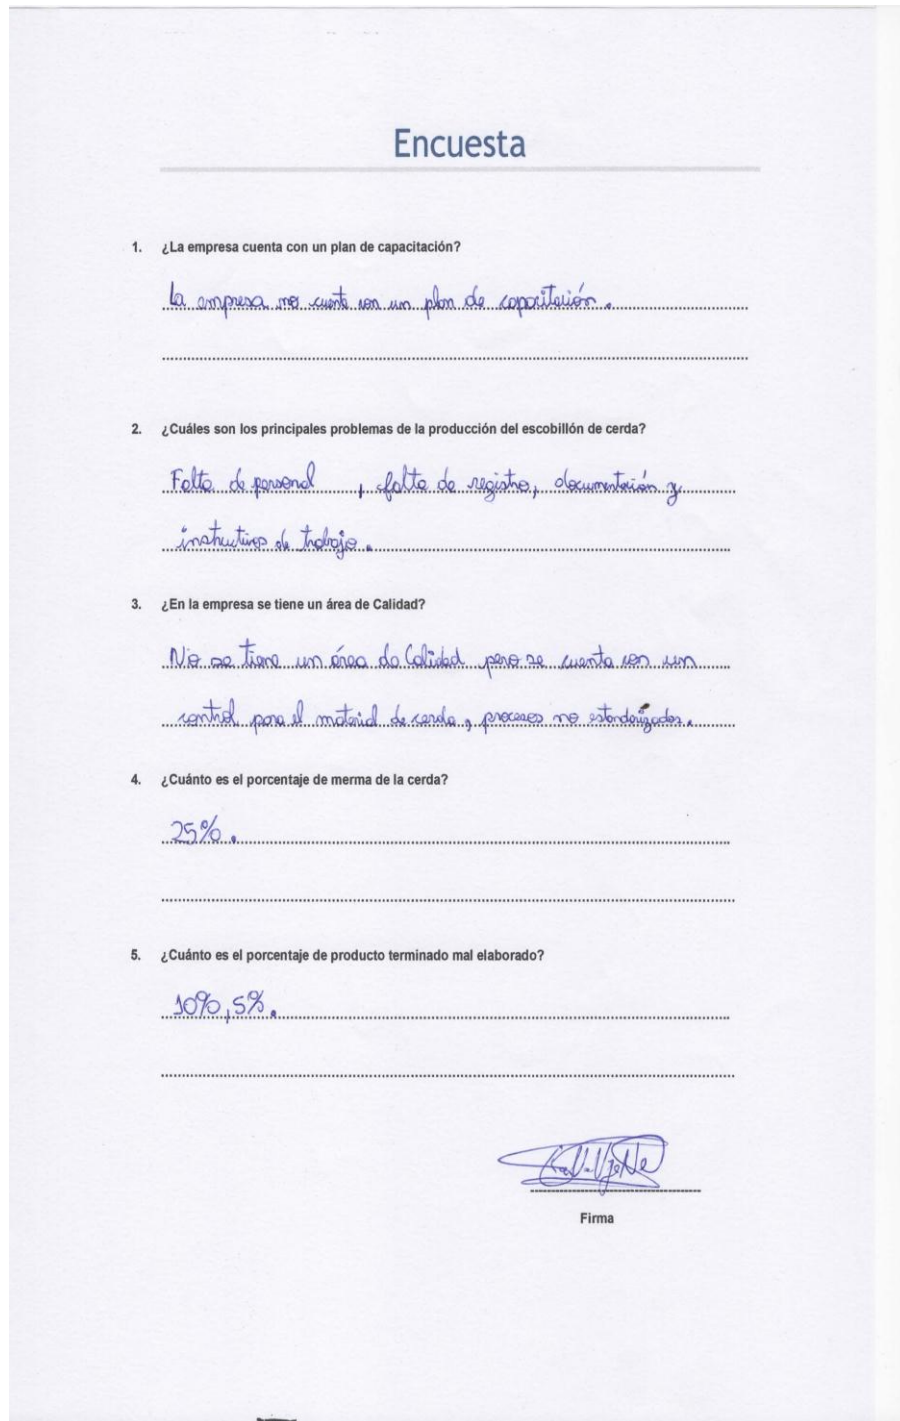 Encuesta
1. ¿La empresa cuenta con un plan de capacitación?
La empresa no cuenta con un plan de capacitación.
2. ¿Cuáles son los principales problemas de la producción del escobillón de cerda?
Falta de personal , falta de registro, documentación y
instructivos de trabajo.
3. ¿En la empresa se tiene un área de Calidad?
No se tiene un área de Calidad pero se cuenta con un
control para el material de cerda, procesos no estandarizados.
4. ¿Cuánto es el porcentaje de merma de la cerda?
25%.
5. ¿Cuánto es el porcentaje de producto terminado mal elaborado?
10%, 5%.
Firma